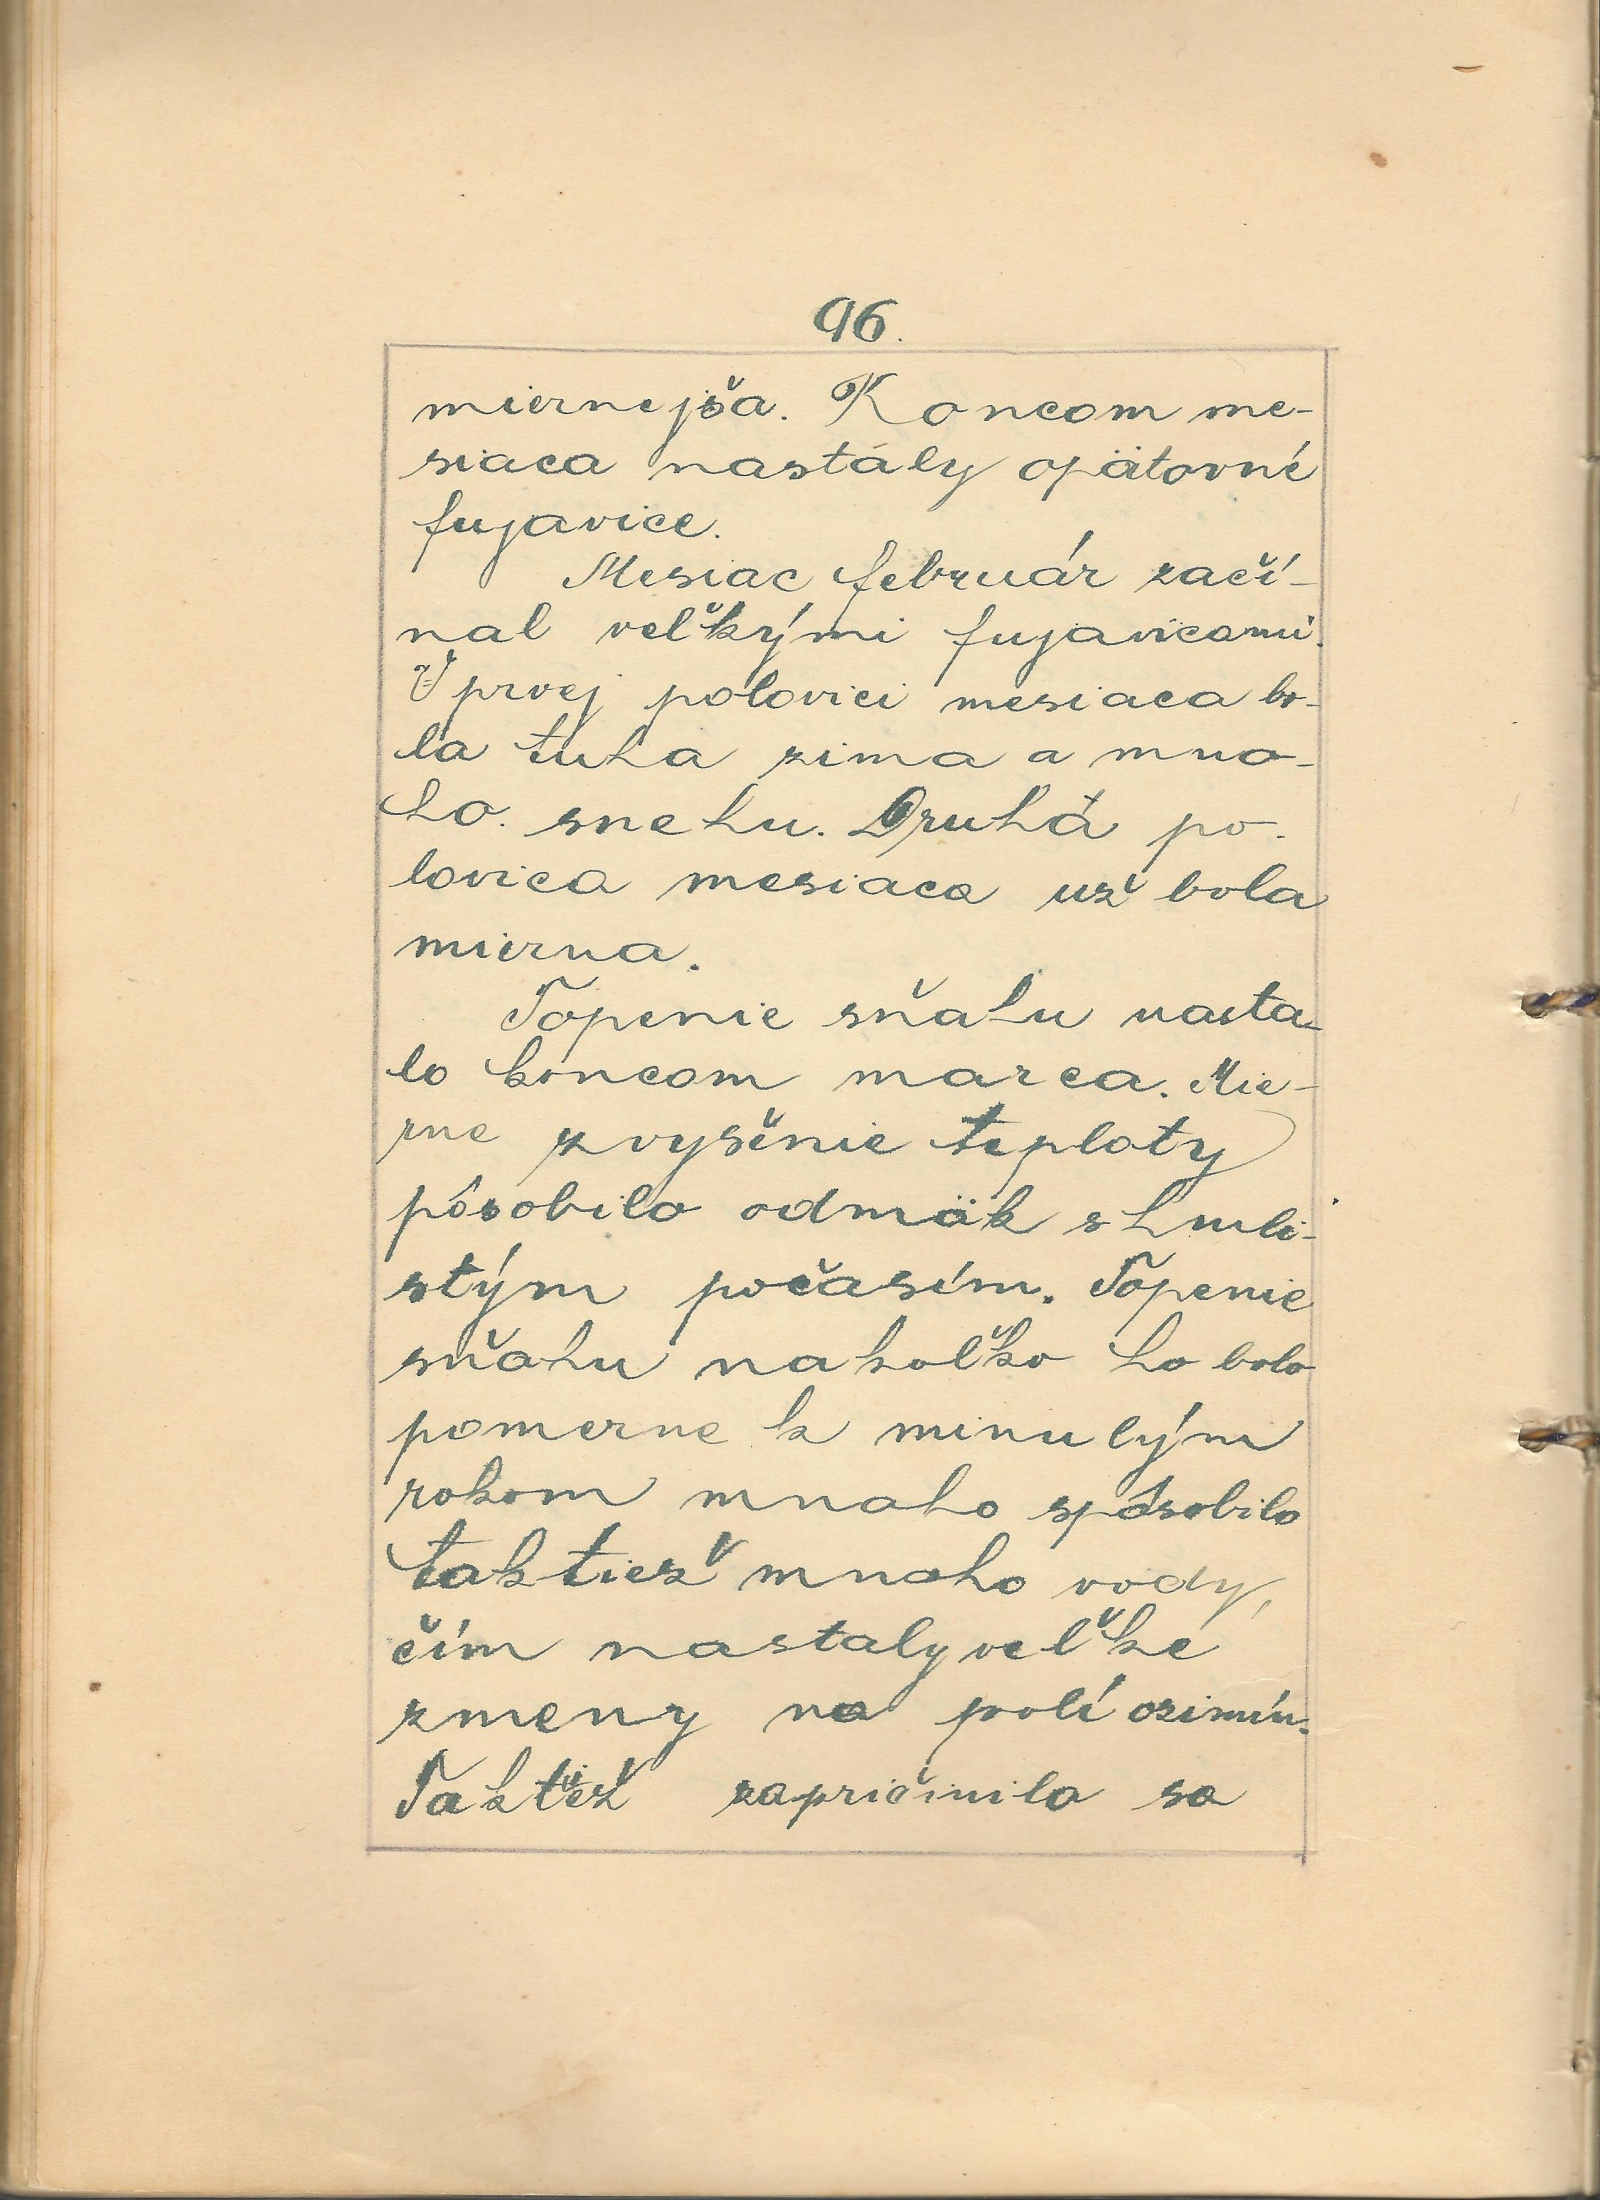 96.
miernejša. Koncom me-
siaca nastály opätovné
fujavice.
Mesiac február začí-
nal veľkými fujavicami.
V prvej polovici mesiaca bo-
la tuha zima a mno-
ho snehu. Druhá po-
lovica mesiaca už bola
mierna.
Topenie sňahu nasta-
lo koncom marca. Mie-
rne zvyšenie teploty
pôsobilo odmäk s hmli-
stým počasím. Topenie
sňahu nakoľko ho bolo
pomerne k minulým
rokom mnoho spôsobilo
taktiež mnoho vody,
čím nastaly veľké
zmeny na polí ozimín.
Taktiež zapričinilo sa